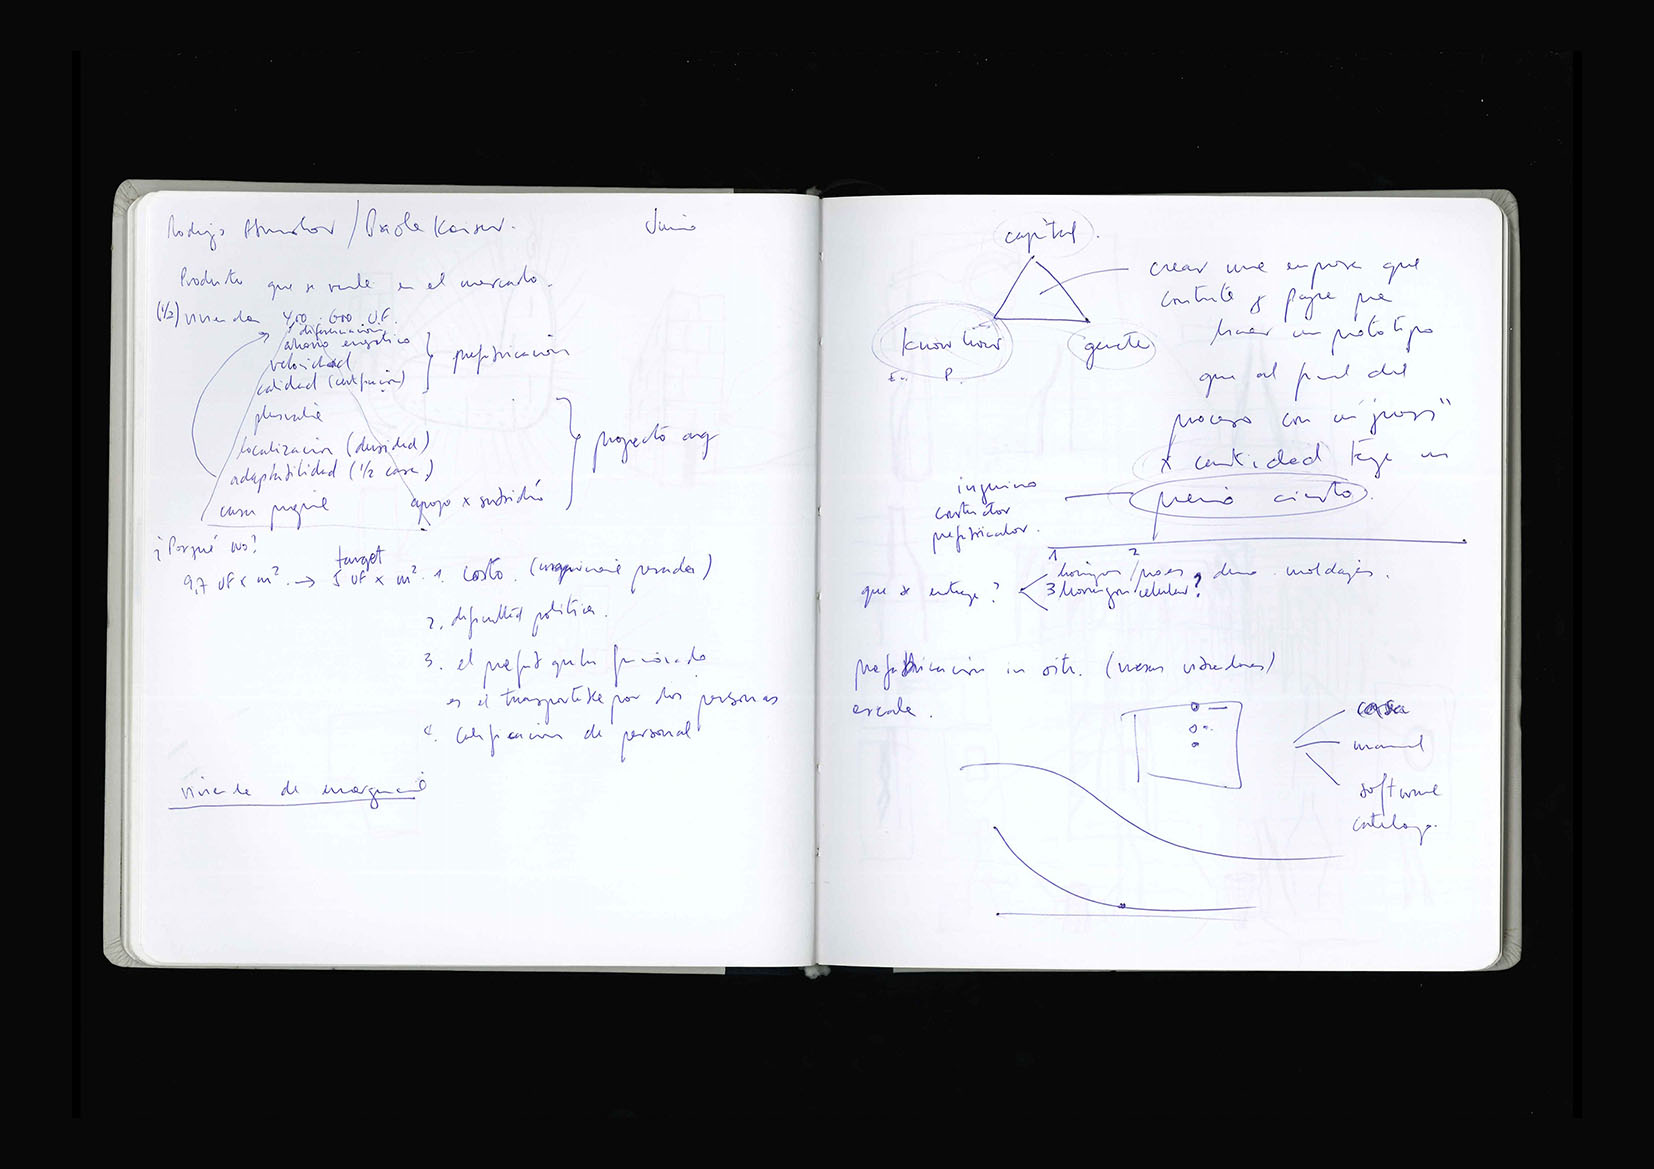 Rodrigo / Paola Kaiser. Junio
Producto que se vende en el mercado.
(1/2) vivienda 400 - 600 UF.
diferenciación
ahorro energético
velocidad
calidad (certificación)
prefabricación
plusvalía
localización (densidad)
adaptabilidad (1/2 casa)
proyecto arq
casa propia
apoyo x subsidio
¿Porqué no?
target
9,7 UF x m² → 5 UF x m²
1. costo. (maquinaria pesada)
2. dificultad política.
3. el prefab que ha funcionado
es el transportable por dos personas
4. calificación de personal
vivienda de emergencia
capital.
know how
E.. P.
gente
crear una empresa que
contrate y pague para
hacer un prototipo
que al final del
proceso con un
x cantidad tenga un
precio cierto.
ingeniero
constructor
prefabricador.
que se entrega?
1 2
hormigon /
moldajes.
3 hormigon celular?
prefabricación in situ. (mesas vibradoras)
escala.
casa
manual
software
catálogo.